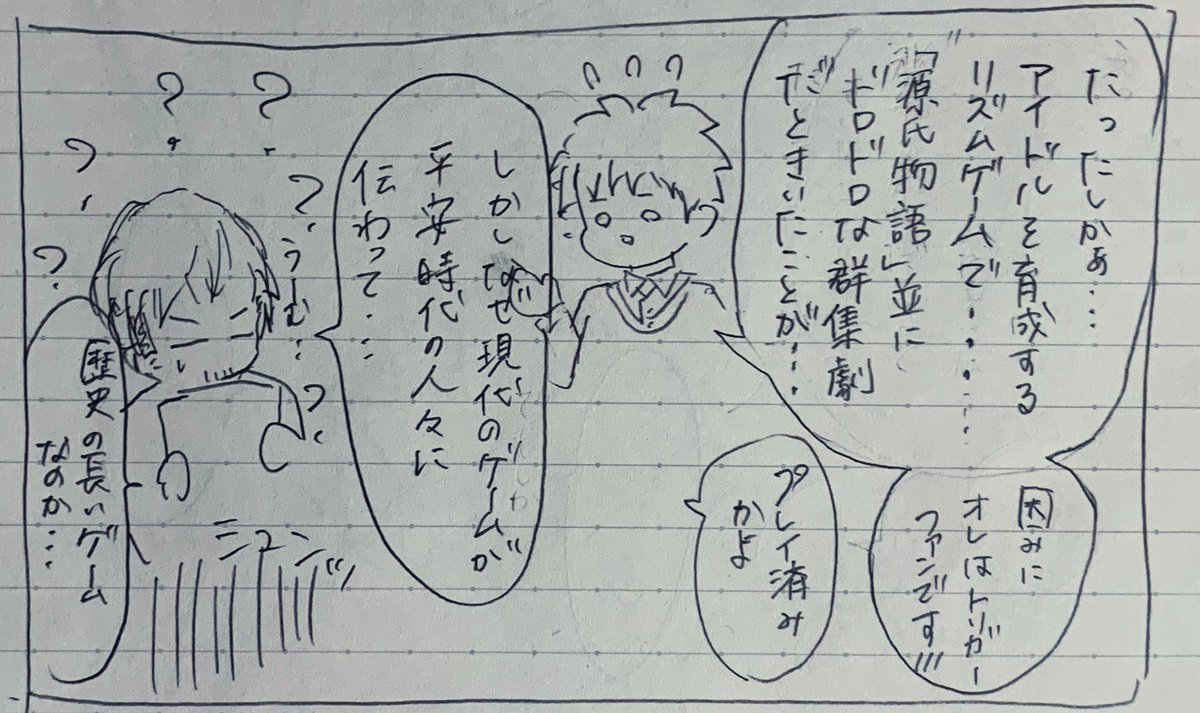 たったしかぁ…
アイドルを育成する
リズムゲームで……
『源氏物語』並に
ドロドロな群集劇
だときいたことが…
因みに
オレはトリガー
ファンです!!!
プレイ済み
かよ
しかしなぜ現代のゲームが
平安時代の人々に
伝わって…
うーむ…
歴史の長いゲーム
なのか…
ミュンッ